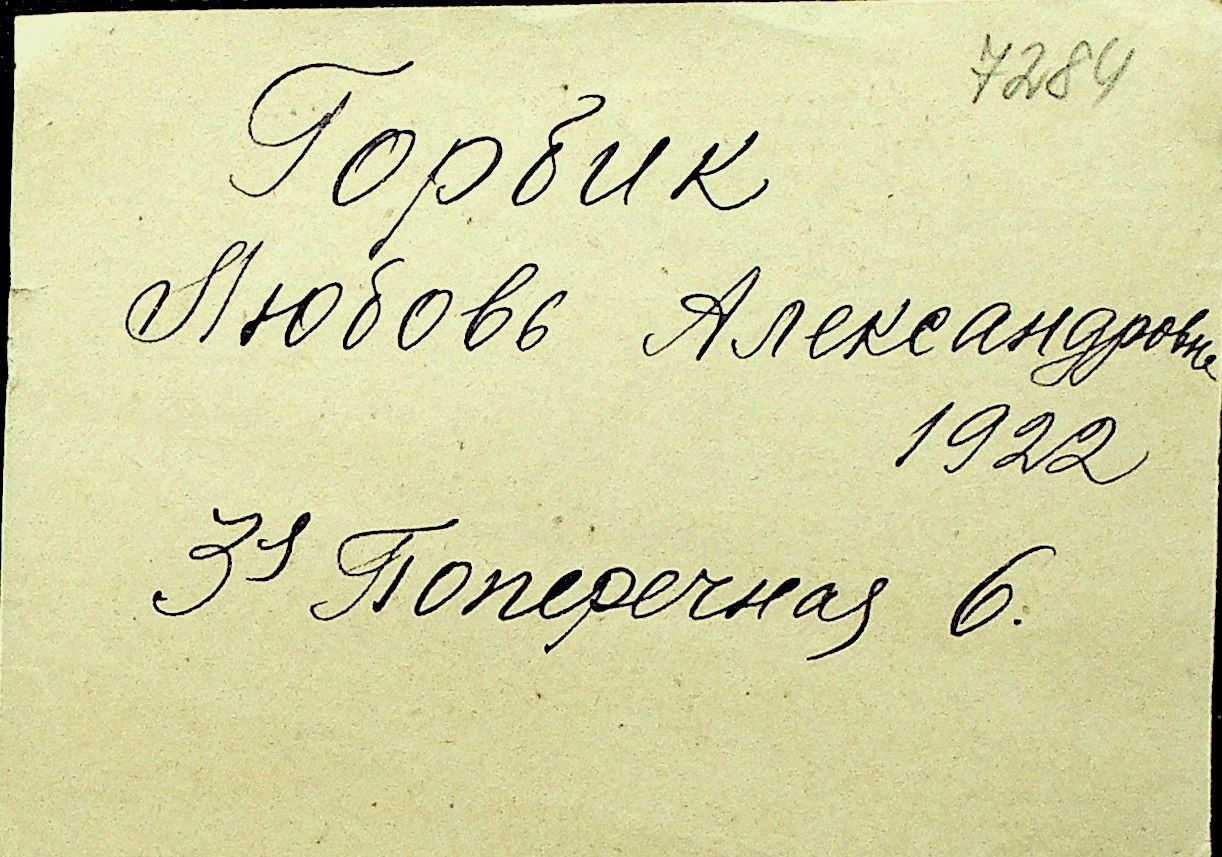 7284
Горбик
Любовь Александровна
1922
3я Поперечная 6.